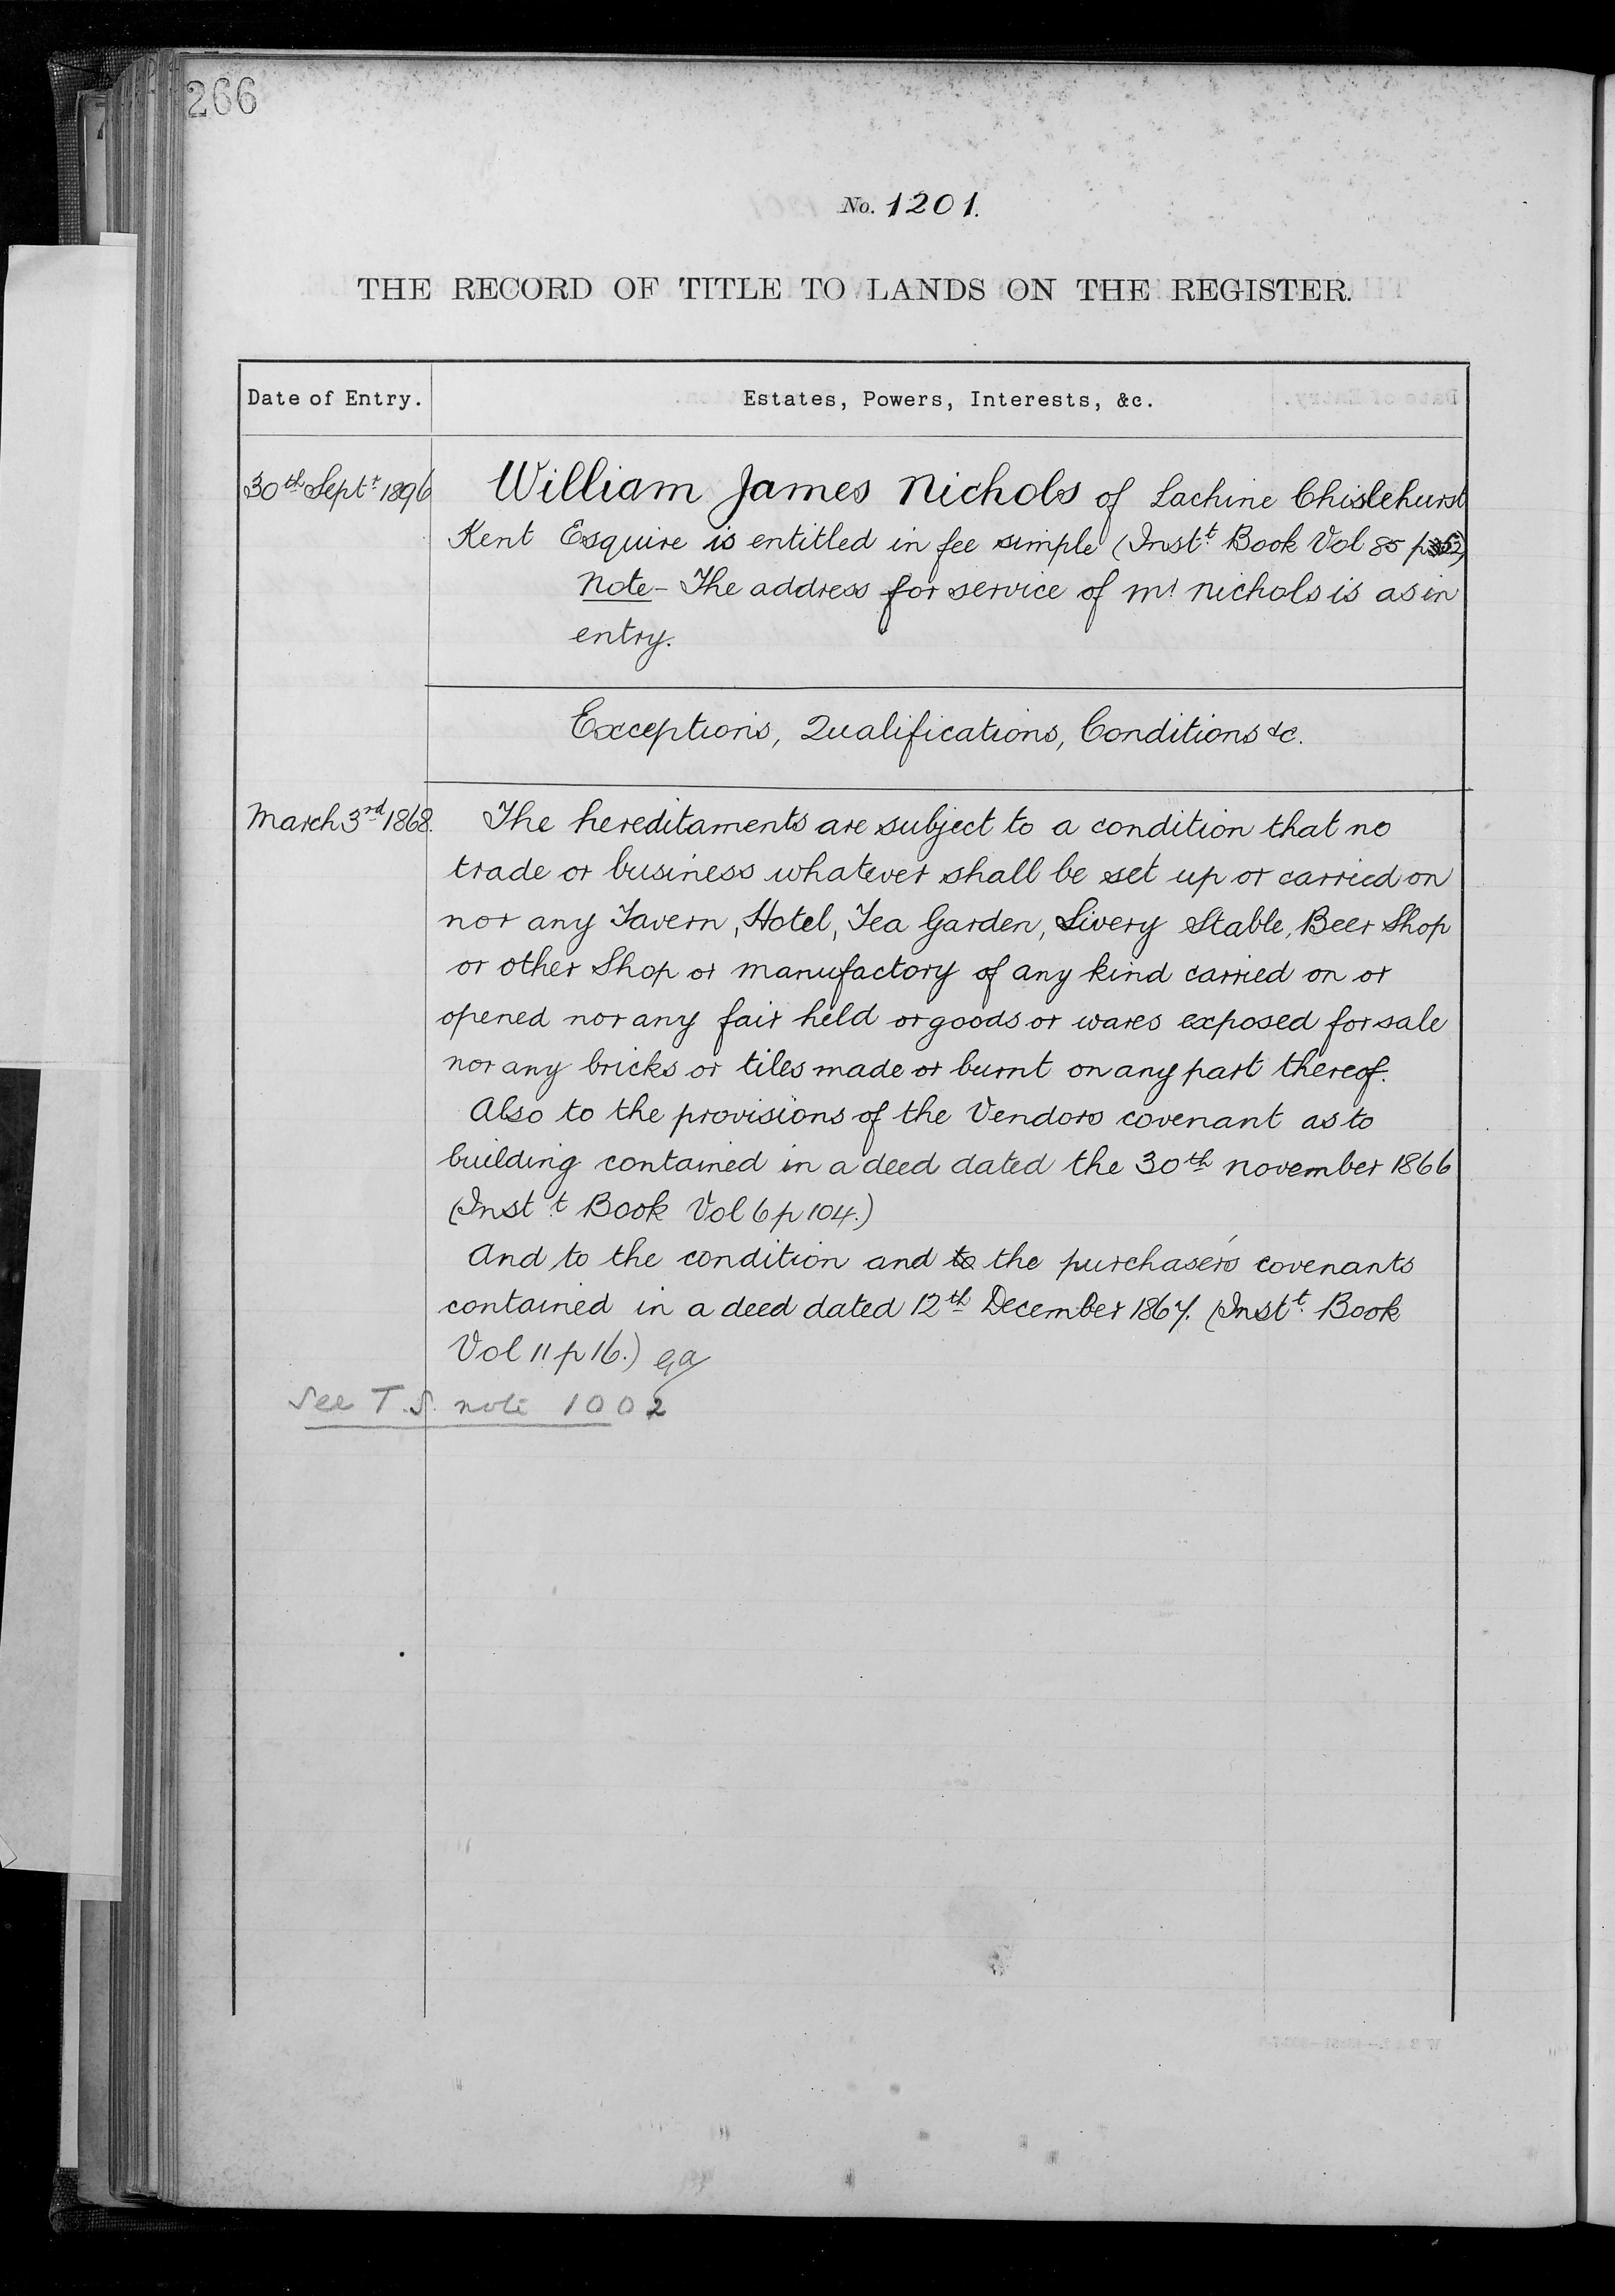 266
No. 1201.
THE RECORD OF TITLE TO LANDS ON THE REGISTER.
Date of Entry.
Estates, Powers, Interests, &c.
30th Septr 1896
William James Nichols of Lachine Chislehurst
Kent Esquire is entitled in fee simple (Instt Book Vol 85 p
Note - The address for service of Mr Nichols is as in
entry.
Exceptions, Qualifications, Conditions &c.
March 3rd 1868.
The hereditaments are subject to a condition that no
trade or business whatever shall be set up or carried on
nor any Tavern, Hotel, Tea Garden, Livery Stable, Beer Shop
or other Shop or manufactory of any kind carried on or
opened nor any fair held or goods or wares exposed for sale
nor any bricks or tiles made or burnt on any part thereof.
Also to the provisions of the Vendors covenant as to
building contained in a deed dated the 30th November 1866
(Instt Book Vol 6 p 104.)
And to the condition and to the purchaser's covenants
contained in a deed dated 12th December 1867. (Instt Book
Vol 11 p 16.)
See T.S. note 1002